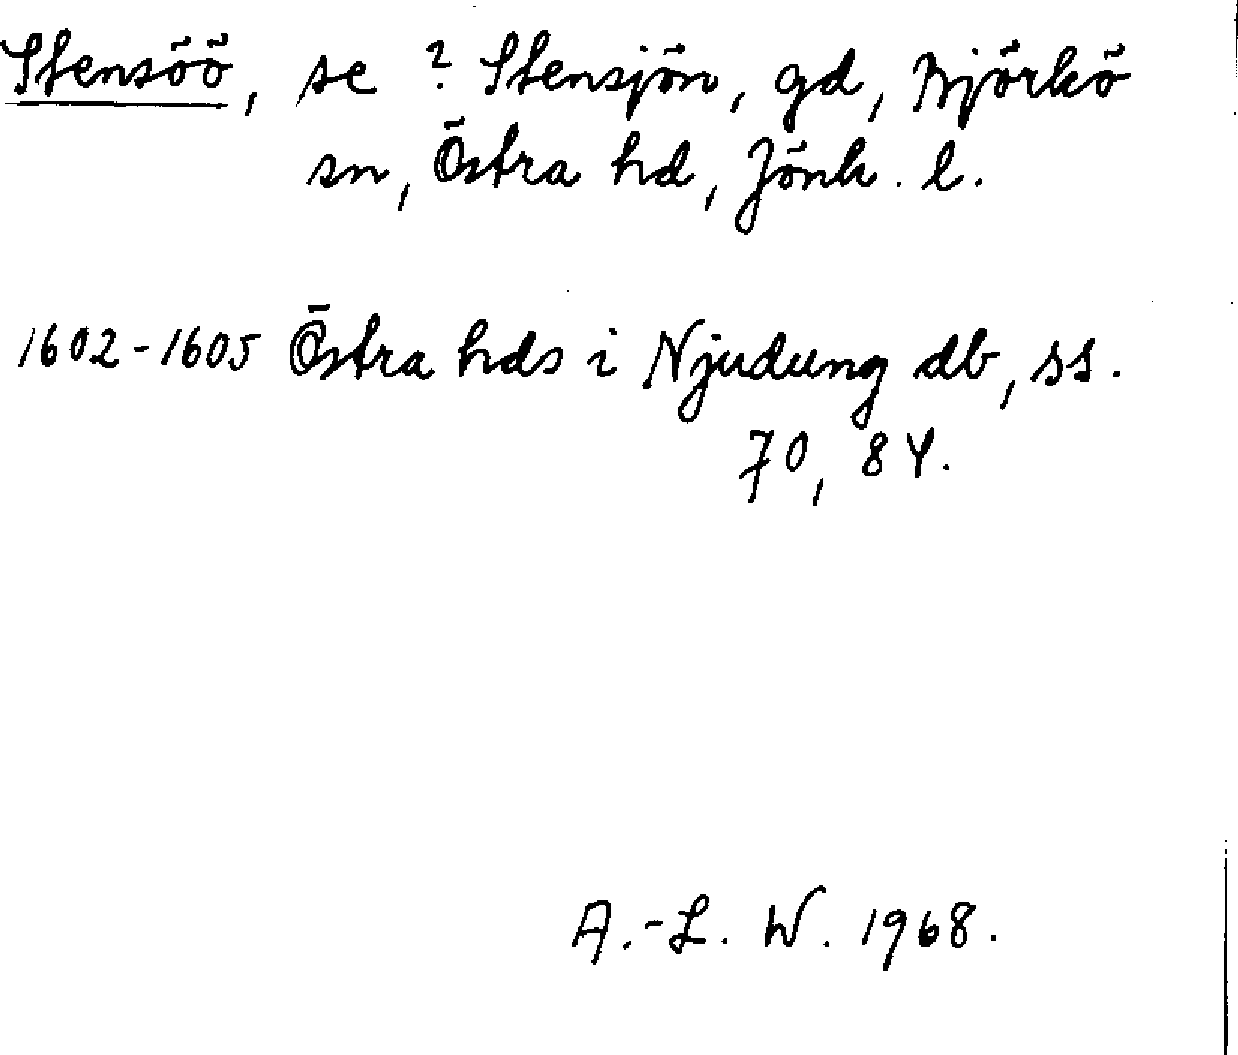 Stensöö, se ? Stensjön, gd, Björkö
sn, Östra hd, Jönk. l.
1602-1605 Östra hds i Njudung db, ss.
70, 84.
A.-L. W. 1968.